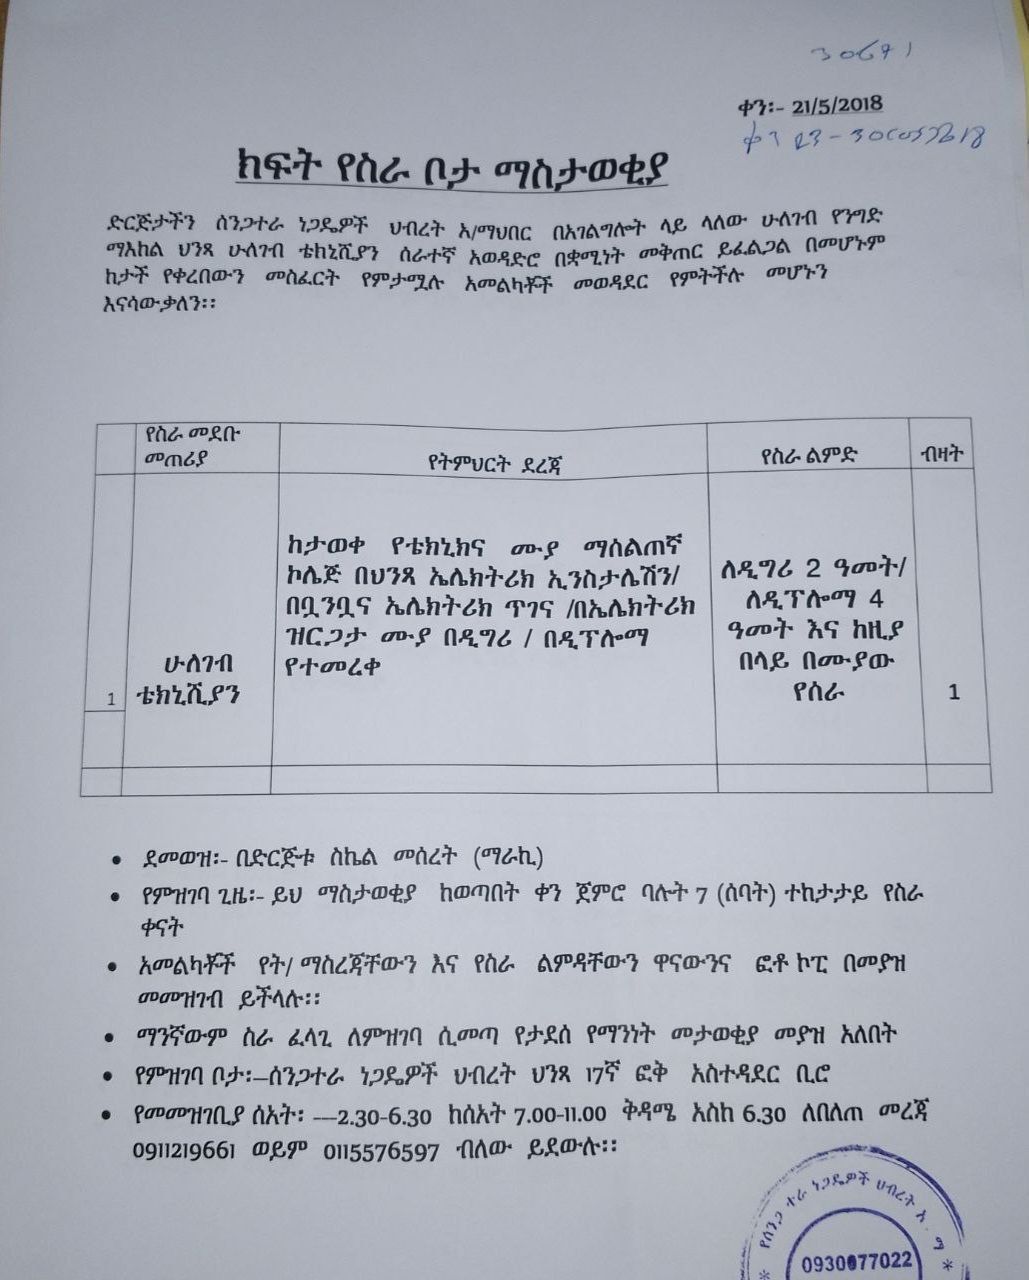 ቀን፡- 21/5/2018
ክፍት የስራ ቦታ ማስታወቂያ
ድርጅታችን ሰንጋተራ ነጋዴዎች ህብረት አ/ማህበር በአገልግሎት ላይ ላለው ሁለገብ የንግድ
ማእከል ህንጻ ሁለገብ ቴክኒሺያን ሰራተኛ አወዳድሮ በቋሚነት መቅጠር ይፈልጋል በመሆኑም
ከታች የቀረበውን መስፈርት የምታሟሉ አመልካቾች መወዳደር የምትችሉ መሆኑን
እናሳውቃለን፡፡
የስራ መደቡ
መጠሪያ
የትምህርት ደረጃ
የስራ ልምድ
ብዛት
1
ሁለገብ
ቴክኒሺያን
ከታወቀ የቴክኒክና ሙያ ማሰልጠኛ
ኮሌጅ በህንጻ ኤሌክትሪክ ኢንስታሌሽን/
በቧንቧና ኤሌክትሪክ ጥገና /በኤሌክትሪክ
ዝርጋታ ሙያ በዲግሪ / በዲፕሎማ
የተመረቀ
ለዲግሪ 2 ዓመት/
ለዲፕሎማ 4
ዓመት እና ከዚያ
በላይ በሙያው
የሰራ
1
• ደመወዝ፡- በድርጅቱ ስኬል መሰረት (ማራኪ)
• የምዝገባ ጊዜ፡- ይህ ማስታወቂያ ከወጣበት ቀን ጀምሮ ባሉት 7 (ሰባት) ተከታታይ የስራ
ቀናት
• አመልካቾች የት/ ማስረጃቸውን እና የስራ ልምዳቸውን ዋናውንና ፎቶ ኮፒ በመያዝ
መመዝገብ ይችላሉ፡፡
• ማንኛውም ስራ ፈላጊ ለምዝገባ ሲመጣ የታደሰ የማንነት መታወቂያ መያዝ አለበት
• የምዝገባ ቦታ፡–ሰንጋተራ ነጋዴዎች ህብረት ህንጻ 17ኛ ፎቅ አስተዳደር ቢሮ
• የመመዝገቢያ ሰአት፡ ---2.30-6.30 ከሰአት 7.00-11.00 ቅዳሜ እስከ 6.30 ለበለጠ መረጃ
0911219661 ወይም 0115576597 ብለው ይደውሉ፡፡
የሰንጋ ተራ ነጋዴዎች ህብረት አ.ማ
0930077022